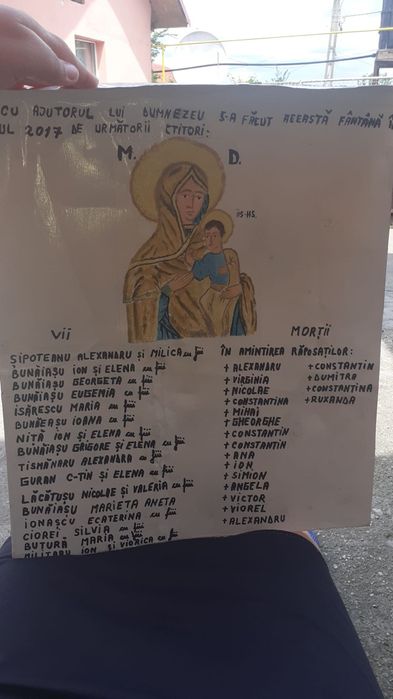 CU AJUTORUL LUI DUMNEZEU S-A FĂCUT ACEASTĂ FÂNTÂNĂ
UL 2017 DE URMATORII CTITORI:
M. D.
IS-HS.
VII
ȘIPOTEANU ALEXANDRU ȘI MILICA cu fii
BUNĂIAȘU ION ȘI ELENA cu fii
BUNĂIAȘU GEORGETA cu fii
BUNĂIAȘU EUGENIA cu fii
ISĂRESCU MARIA cu fii
BUNĂEAȘU IOANA cu fii
NIȚĂ ION ȘI ELENA cu fii
BUNĂIAȘU GRIGORE ȘI ELENA cu fii
TISMĂNARU ALEXANDRA cu fii
GURAN C-TIN ȘI ELENA cu fii
LĂCĂTUȘU NICOLAE ȘI VALERIA cu fii
BUNĂIAȘU MARIETA ANETA
IONAȘCU ECATERINA cu fii
CIOREI SILVIA cu fii
BUTURĂ MARIA cu fii
MILITARU ION ȘI VIORICA cu fii
MORȚII
ÎN AMINTIREA RĂPOSAȚILOR:
+ ALEXANDRU
+ VIRGINIA
+ NICOLAE
+ CONSTANTINA
+ MIHAI
+ GHEORGHE
+ CONSTANTIN
+ CONSTANTIN
+ ANA
+ ION
+ SIMION
+ ANGELA
+ VICTOR
+ VIOREL
+ ALEXANDRU
+ CONSTANTIN
+ DUMITRA
+ CONSTANTINA
+ RUXANDA